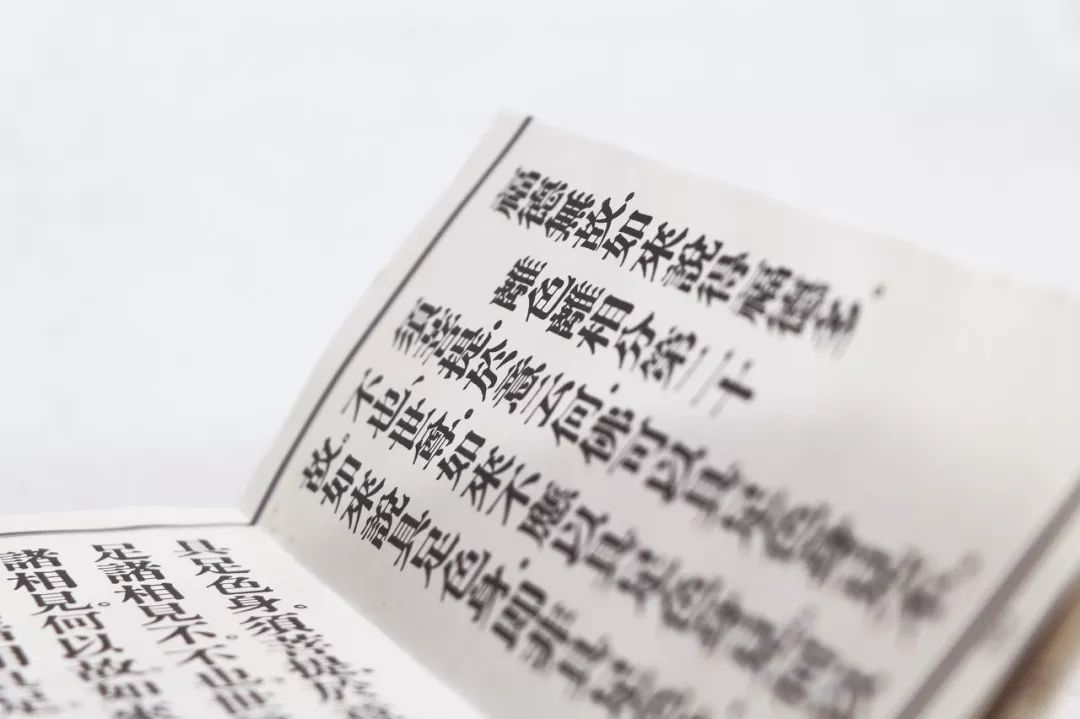 福德無故。如來說得福德多。
離色離相分第二十
須菩提。於意云何。佛可以具足色身見不。
不也。世尊。如來不應以具足色身見。何以
故。如來說具足色身。即非具足
具足色身。須菩提。於
足諸相見不。不也。世
諸相見。何以故。如來